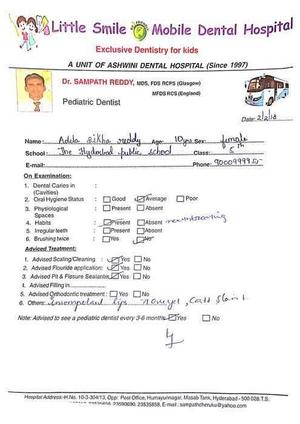 Little Smile Mobile Dental Hospital
Exclusive Dentistry for kids
A UNIT OF ASHWINI DENTAL HOSPITAL (Since 1997)
Dr. SAMPATH REDDY, MDS, FDS RCPS (Glasgow)
MFDS RCS (England)
Pediatric Dentist
Date: 2/2/18
Name: reddy age 10yrs Sex: female
School: The Hyderabad public school Class: 5th
E-mail: Phone:
On Examination:
1. Dental Caries in (Cavities) :
2. Oral Hygiene Status : Good Average Poor
3. Physiological Spaces : Present Absent
4. Habits : Present Absent
5. Irregular teeth : Present Absent
6. Brushing twice : Yes No
Adviced Treatment:
1. Advised Scaling/Cleaning : Yes No
2. Advised Flouride application: Yes No
3. Advised Pit & Fissure Sealants: Yes No
4. Advised Filling in
5. Advised Orthodontic treatment: Yes No
6. Others: lips
Note: Advised to see a pediatric dentist every 3-6 months Yes No
Hospital Address: H.No. 10-3-304/13, Opp: Post Office, Humayunnagar, Masab Tank, Hyderabad - 500 028.T.S.
23590690, 23535858, E-mail : sampathcheruku@yahoo.com